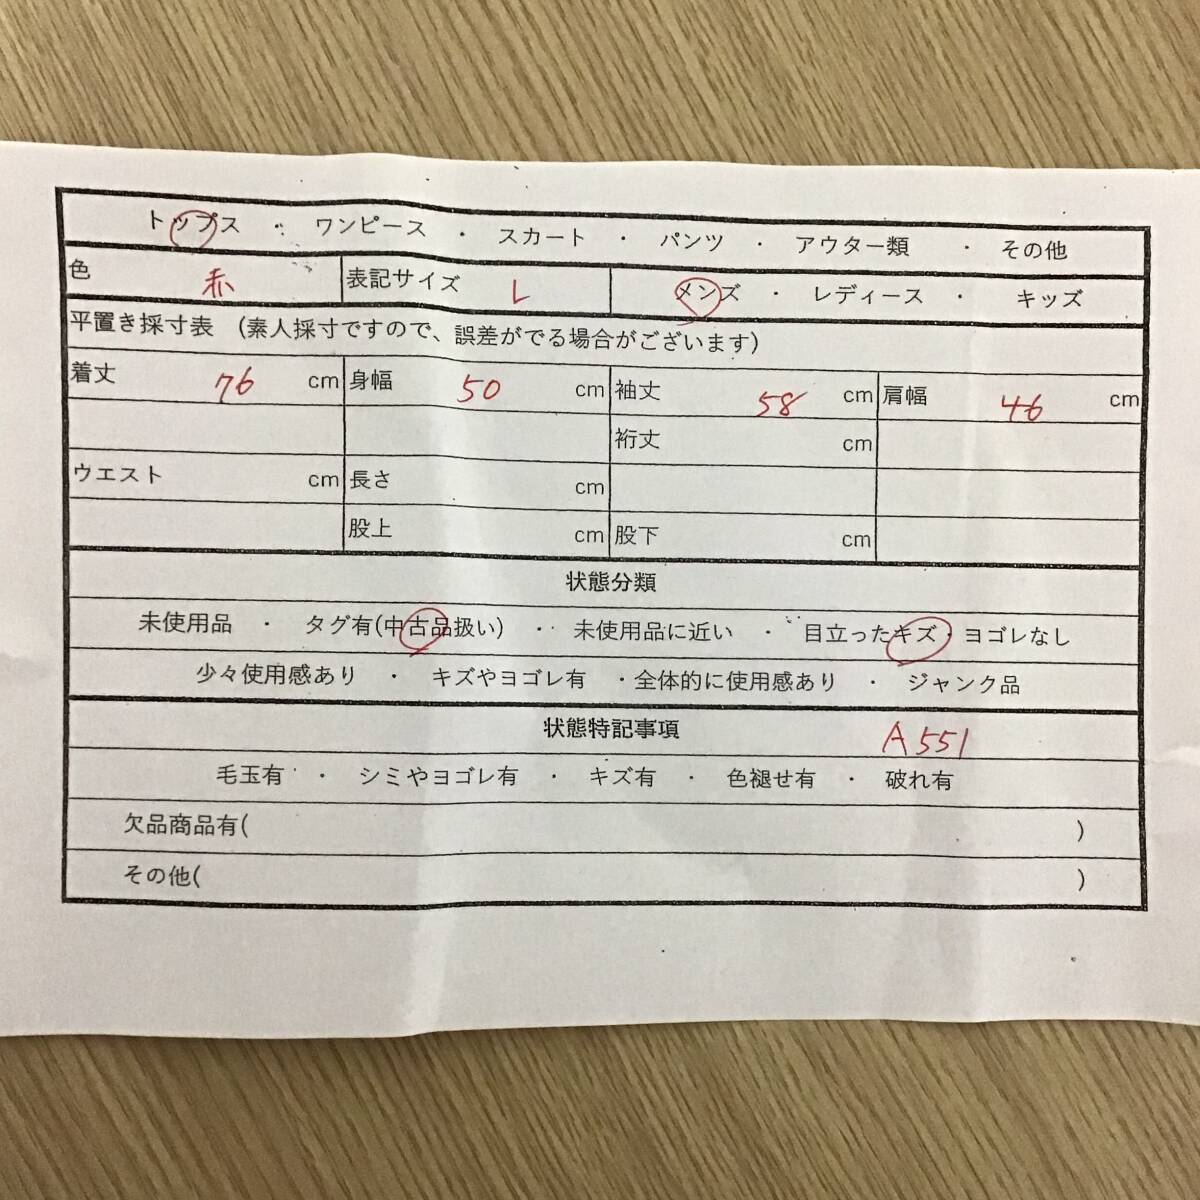 トップス ・ ワンピース ・ スカート ・ パンツ ・ アウター類 ・ その他
色 赤 表記サイズ L メンズ ・ レディース ・ キッズ
平置き採寸表 (素人採寸ですので、誤差がでる場合がございます)
着丈 76 cm 身幅 50 cm 袖丈 58 cm 肩幅 46 cm
裄丈 cm
ウエスト cm 長さ cm
股上 cm 股下 cm
状態分類
未使用品 ・ タグ有(中古品扱い) ・ 未使用品に近い ・ 目立ったキズ・ヨゴレなし
少々使用感あり ・ キズやヨゴレ有 ・全体的に使用感あり ・ ジャンク品
状態特記事項 A551
毛玉有 ・ シミやヨゴレ有 ・ キズ有 ・ 色褪せ有 ・ 破れ有
欠品商品有( )
その他( )